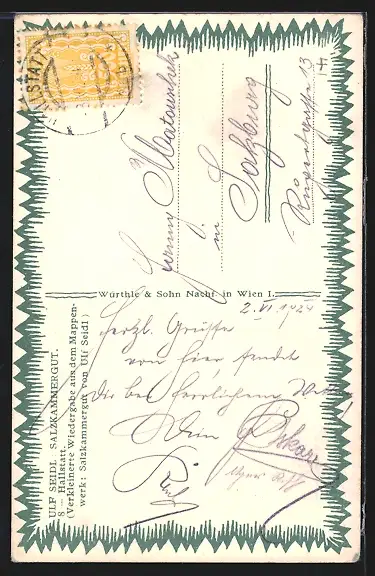 HALLSTATT
Jenny Matouschek
in
Salzburg
Rupertgasse 13
Würthle & Sohn Nachf. in Wien I.
2. VI. 1924
Herzl. Grüsse
von hier sendet
Dir bei herrlichem
Dein Oskar
ULF SEIDL SALZKAMMERGUT.
8 — Hallstatt.
(Verkleinerte Wiedergabe aus dem Mappen-
werk: Salzkammergut von Ulf Seidl)